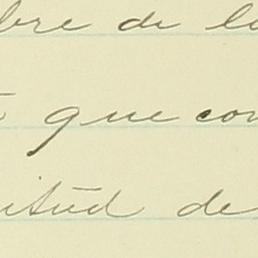 bre de l
que con
itud de